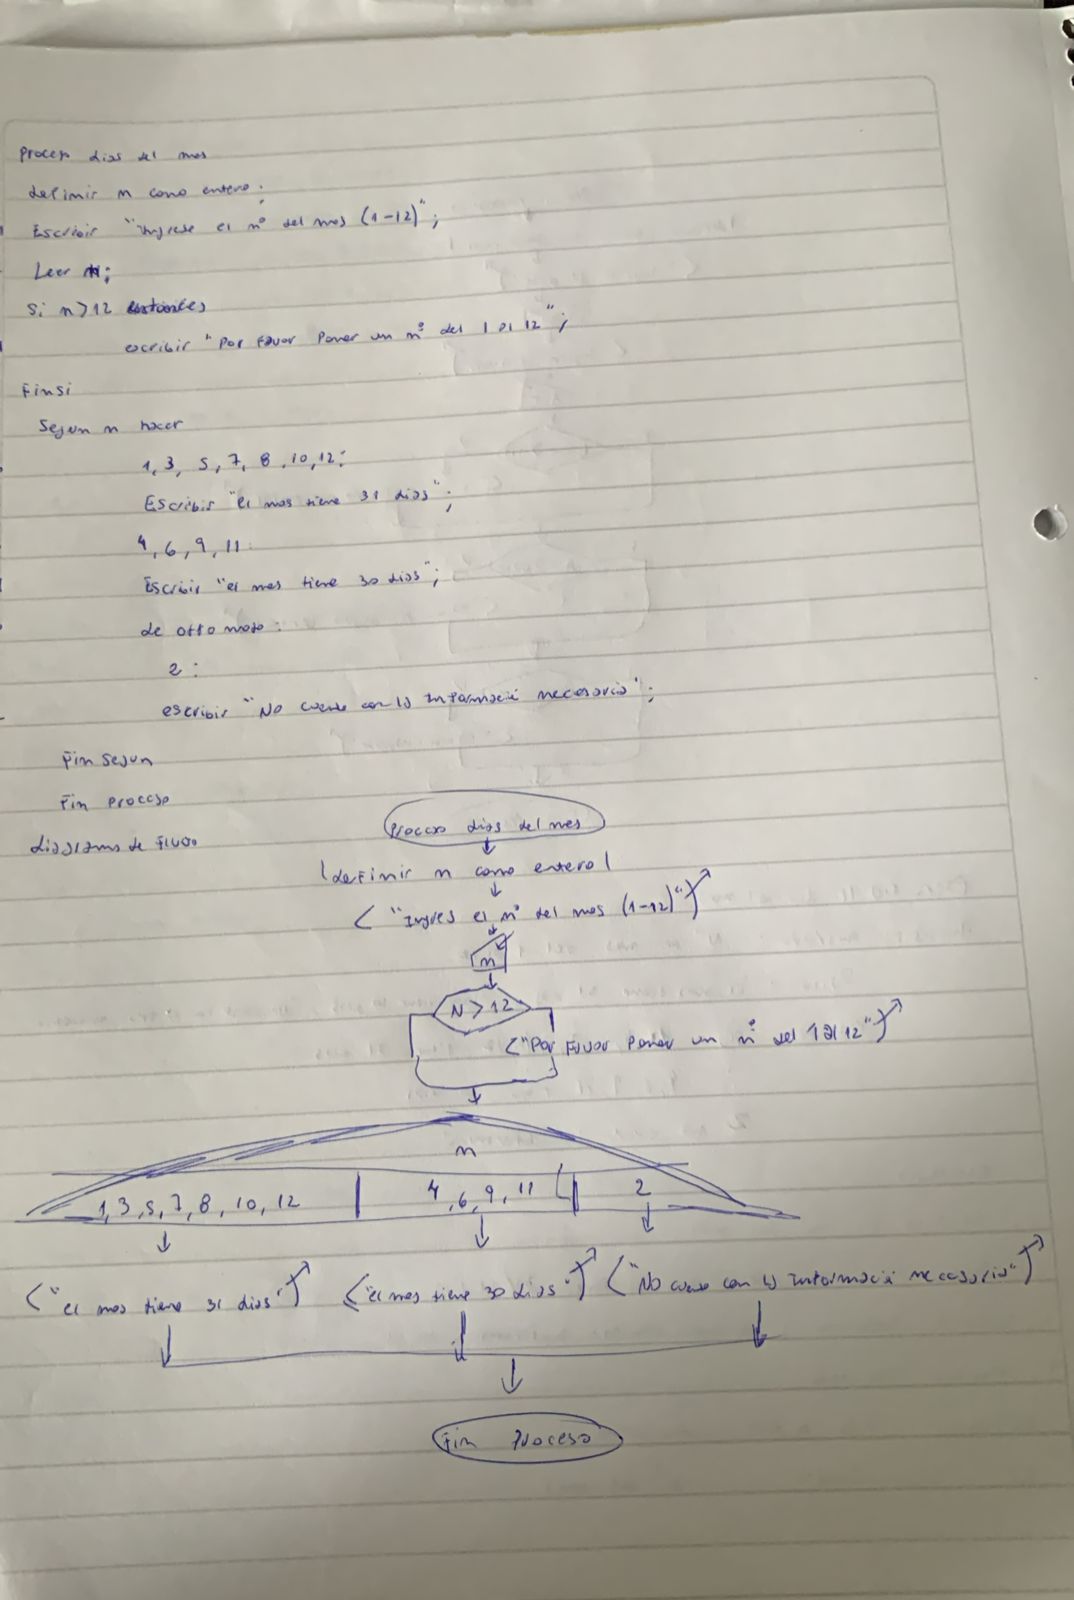 Proceso dias del mes
definir n como entero;
Escribir "Ingrese el n° del mes (1-12)";
Leer n;
Si n>12 entonces
escribir "Por favor Poner un n° del 1 al 12";
Finsi
Segun n hacer
1, 3, 5, 7, 8, 10, 12:
Escribir "el mes tiene 31 dias";
4, 6, 9, 11:
Escribir "el mes tiene 30 dias";
de otro modo:
2:
escribir "No cuento con la informació necesaria";
Fin segun
Fin proceso
diagrama de flujo
Proceso dias del mes
definir n como entero
"Ingres el n° del mes (1-12)"
n
N>12
"Por Favor Poner un n° del 1 al 12"
n
1, 3, 5, 7, 8, 10, 12 4, 6, 9, 11 2
"el mes tiene 31 dias" "el mes tiene 30 dias" "No cuento con la informació necesaria"
Fin Proceso